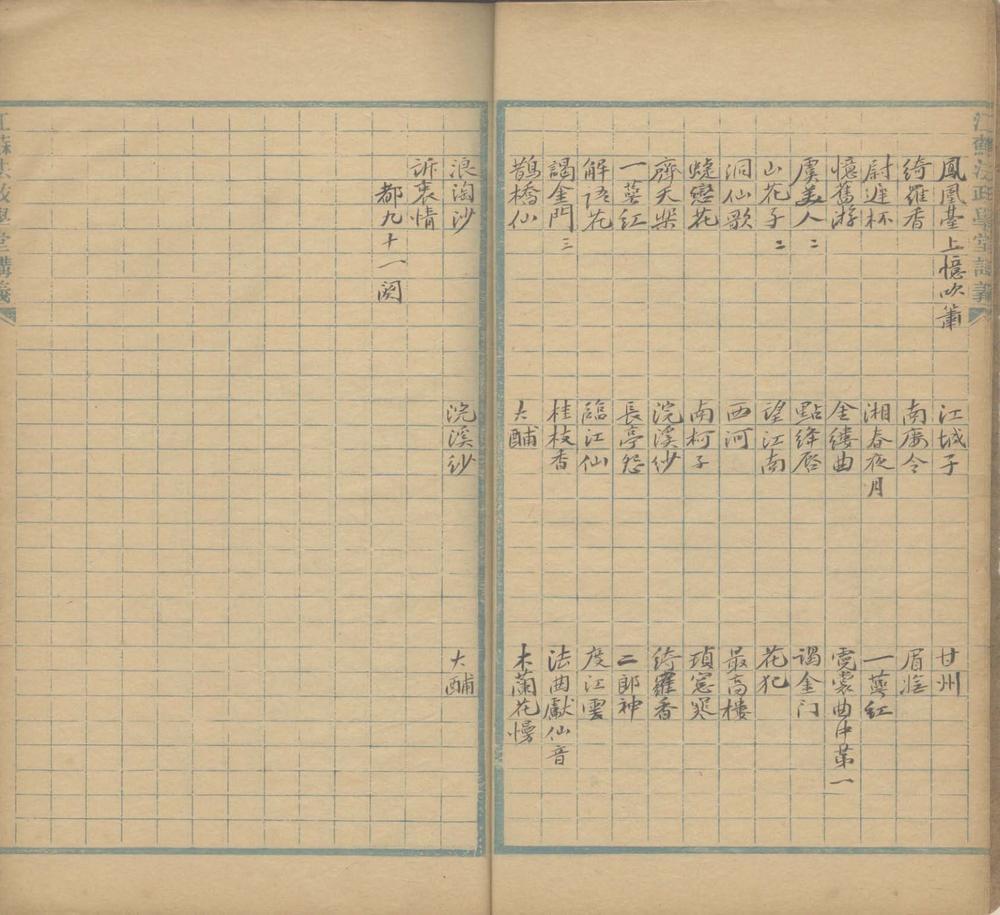 江蘇法政學堂講義
鳳凰臺上憶吹簫 江城子 甘州
綺羅香 南廣令 眉嫵
尉遲杯 湘春夜月 一萼紅
憶舊游 金縷曲 霓裳曲中第一
虞美人二 點絳唇 謁金门
山花子二 望江南 花犯
洞仙歌 西河 最高樓
蜨戀花 南柯子 瑣窓寒
齊天樂 浣溪紗 綺羅香
一萼紅 長亭怨 二郎神
解语花 臨江仙 度江雲
謁金門三 桂枝香 法曲獻仙音
鵲橋仙 大酺 木蘭花慢
浪淘沙 浣溪紗 大酺
訴衷情
都九十一闋
江蘇法政學堂講義